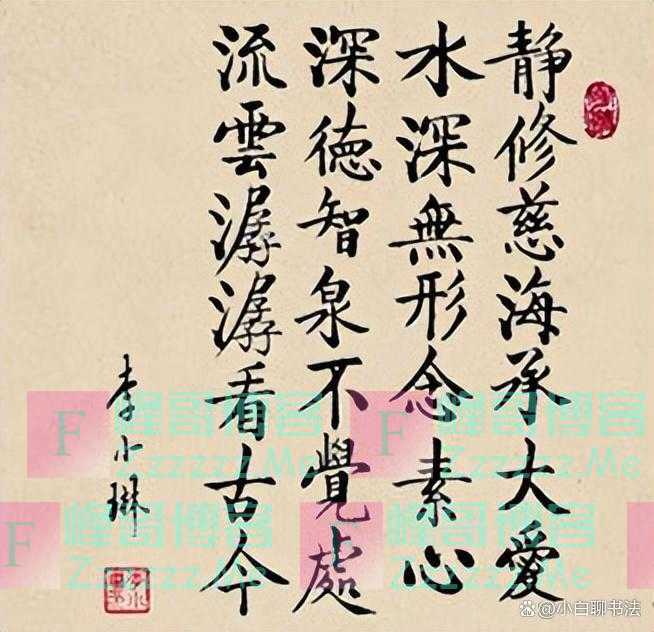 静修慈海承大愛
水深無形念素心
深德智泉不覺處
流雲潺潺看古今
李小琳
F 峰哥博客
Zzzzzz.Me
F 峰哥博客
Zzzzzz.Me
F 峰哥博客
Zzzzzz.Me
F 峰哥博客
Zzzzzz.Me
@小白聊书法